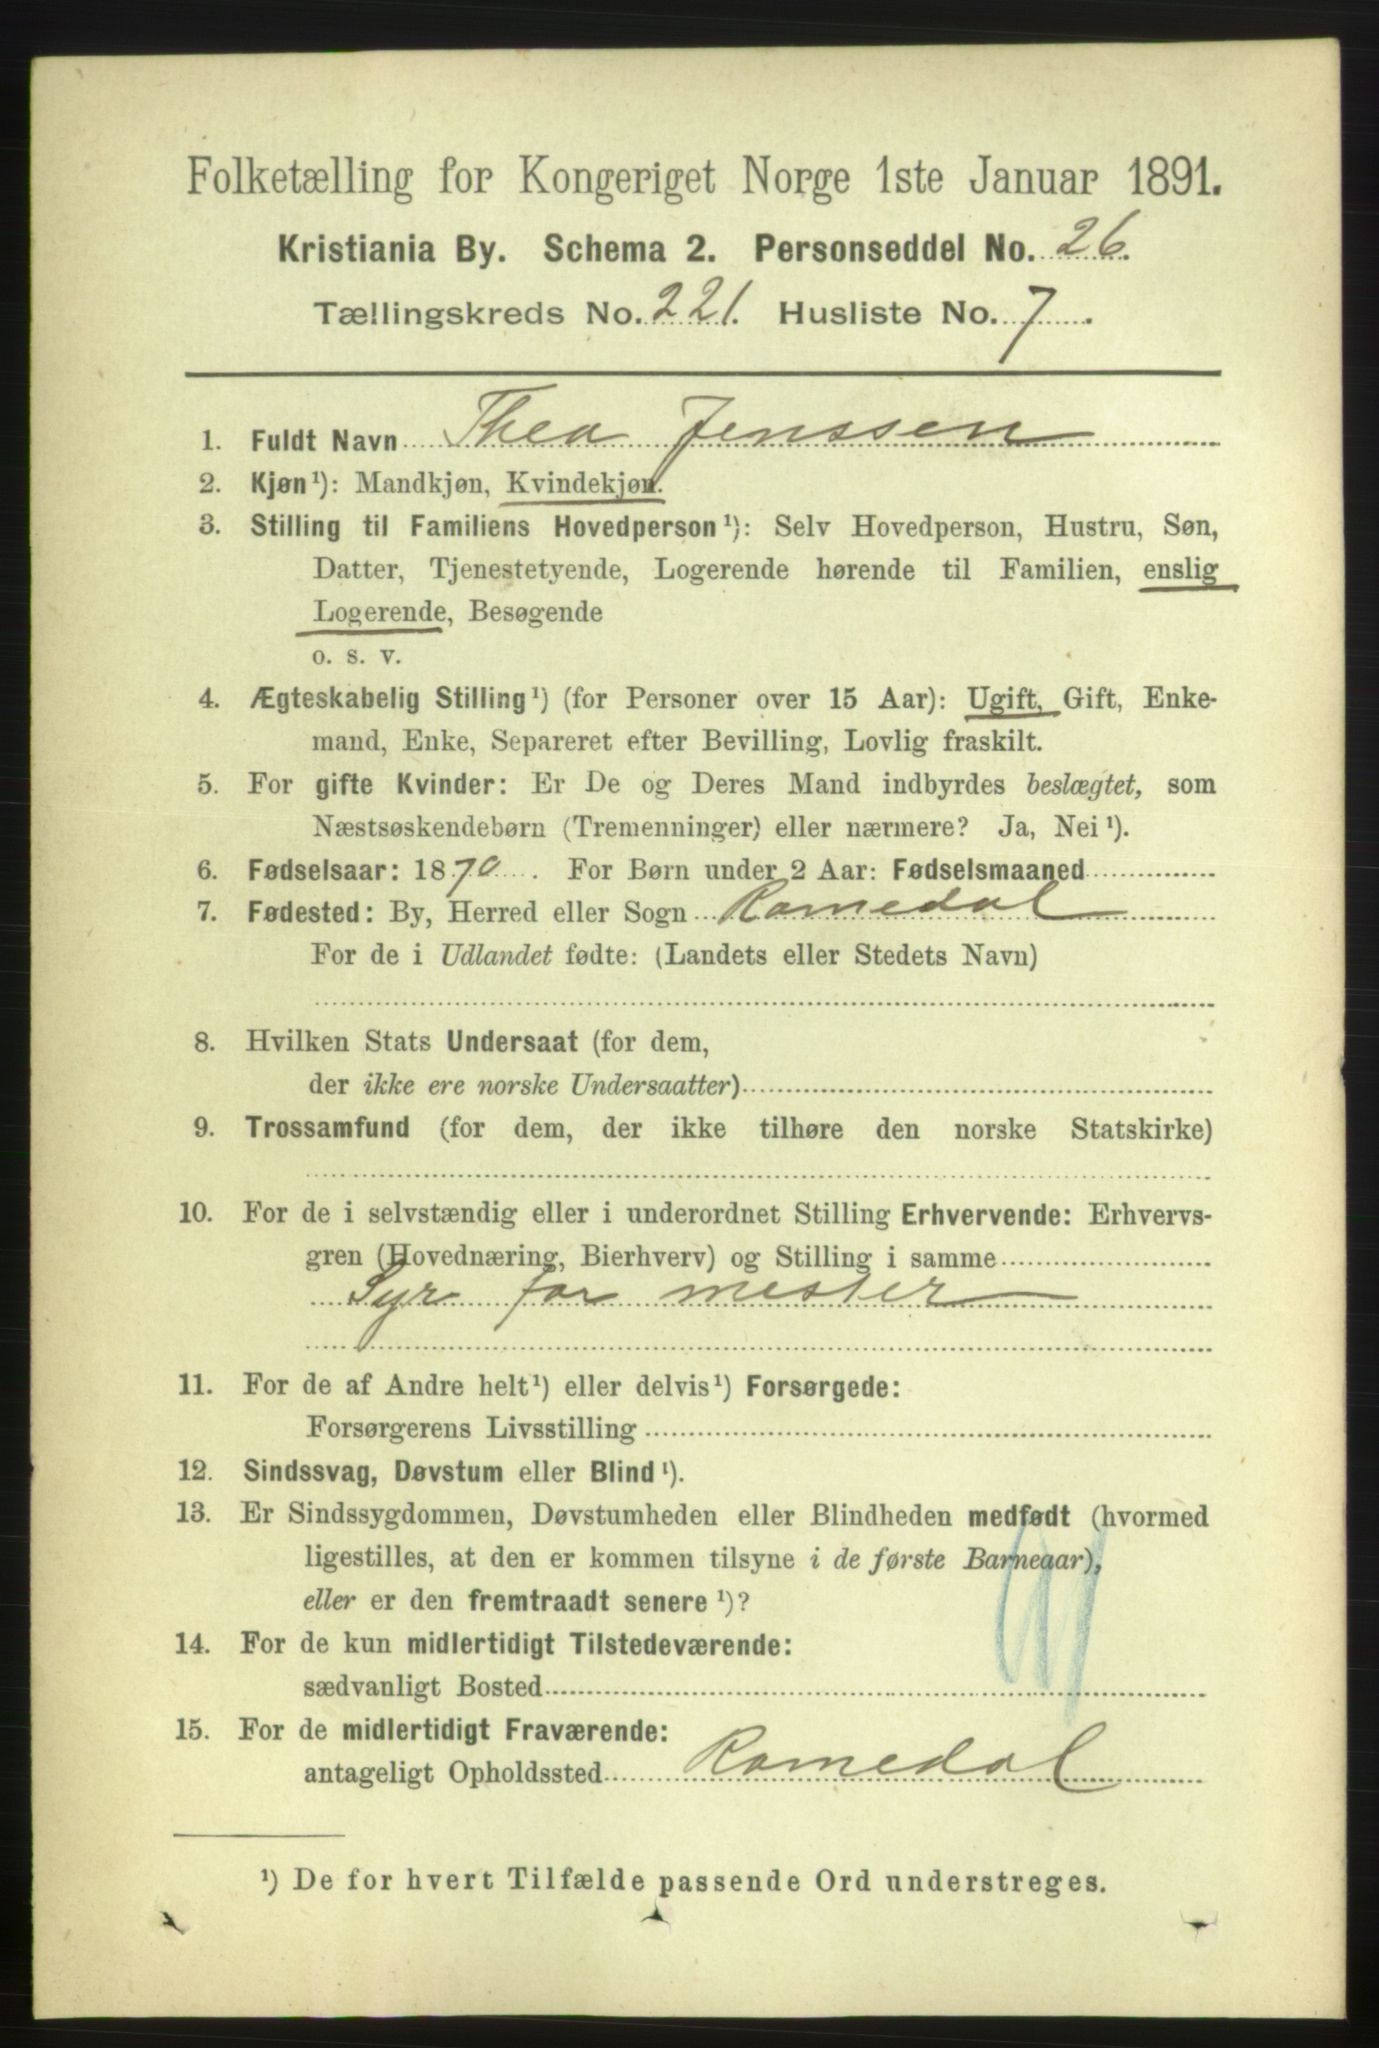 Folketælling for Kongeriget Norge 1ste Januar 1891.
Kristiania By. Schema 2. Personseddel No. 26.
Tællingskreds No. 221. Husliste No. 7.
1. Fuldt Navn Thea Jenssen
2. Kjøn¹): Mandkjøn, Kvindekjøn.
3. Stilling til Familiens Hovedperson¹): Selv Hovedperson, Hustru, Søn,
Datter, Tjenestetyende, Logerende hørende til Familien, enslig
Logerende, Besøgende
o. s. v.
4. Ægteskabelig Stilling¹) (for Personer over 15 Aar): Ugift, Gift, Enke-
mand, Enke, Separeret efter Bevilling, Lovlig fraskilt.
5. For gifte Kvinder: Er De og Deres Mand indbyrdes beslægtet, som
Næstsøskendebørn (Tremenninger) eller nærmere? Ja, Nei¹).
6. Fødselsaar: 1870. For Børn under 2 Aar: Fødselsmaaned
7. Fødested: By, Herred eller Sogn Romedal
For de i Udlandet fødte: (Landets eller Stedets Navn)
8. Hvilken Stats Undersaat (for dem,
der ikke ere norske Undersaatter)
9. Trossamfund (for dem, der ikke tilhøre den norske Statskirke)
10. For de i selvstændig eller i underordnet Stilling Erhvervende: Erhvervs-
gren (Hovednæring, Bierhverv) og Stilling i samme
Syr for mester
11. For de af Andre helt¹) eller delvis¹) Forsørgede:
Forsørgerens Livsstilling
12. Sindssvag, Døvstum eller Blind¹).
13. Er Sindssygdommen, Døvstumheden eller Blindheden medfødt (hvormed
ligestilles, at den er kommen tilsyne i de første Barneaar),
eller er den fremtraadt senere¹)?
14. For de kun midlertidigt Tilstedeværende:
sædvanligt Bosted
15. For de midlertidigt Fraværende:
antageligt Opholdssted Romedal
¹) De for hvert Tilfælde passende Ord understreges.